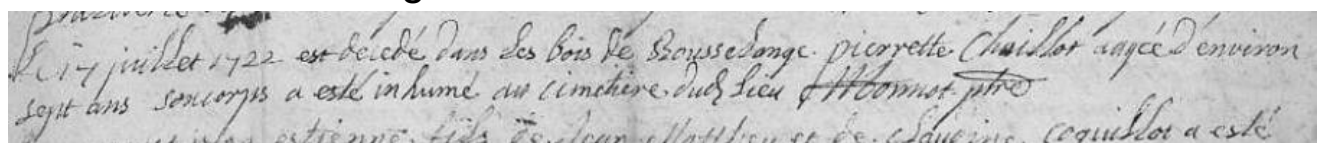 Le 17 juillet 1722 est decedé dans les bois de Roussedange pierrette Chaillot aagée d'environ
sept ans son corps a esté inhumé au cimetière dud lieu JMonnot ptre
estienne fils de Jean Matthieu et de Claudine Coquillot a esté